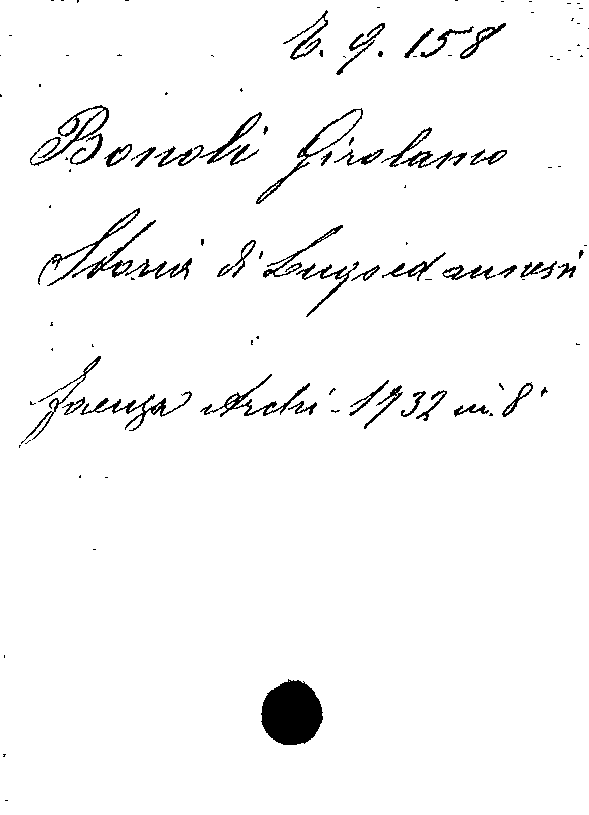 E. 9. 158
Bonoli Girolamo
Storia di Lugo ed annessi
Faenza Archi - 1732 in. 8°